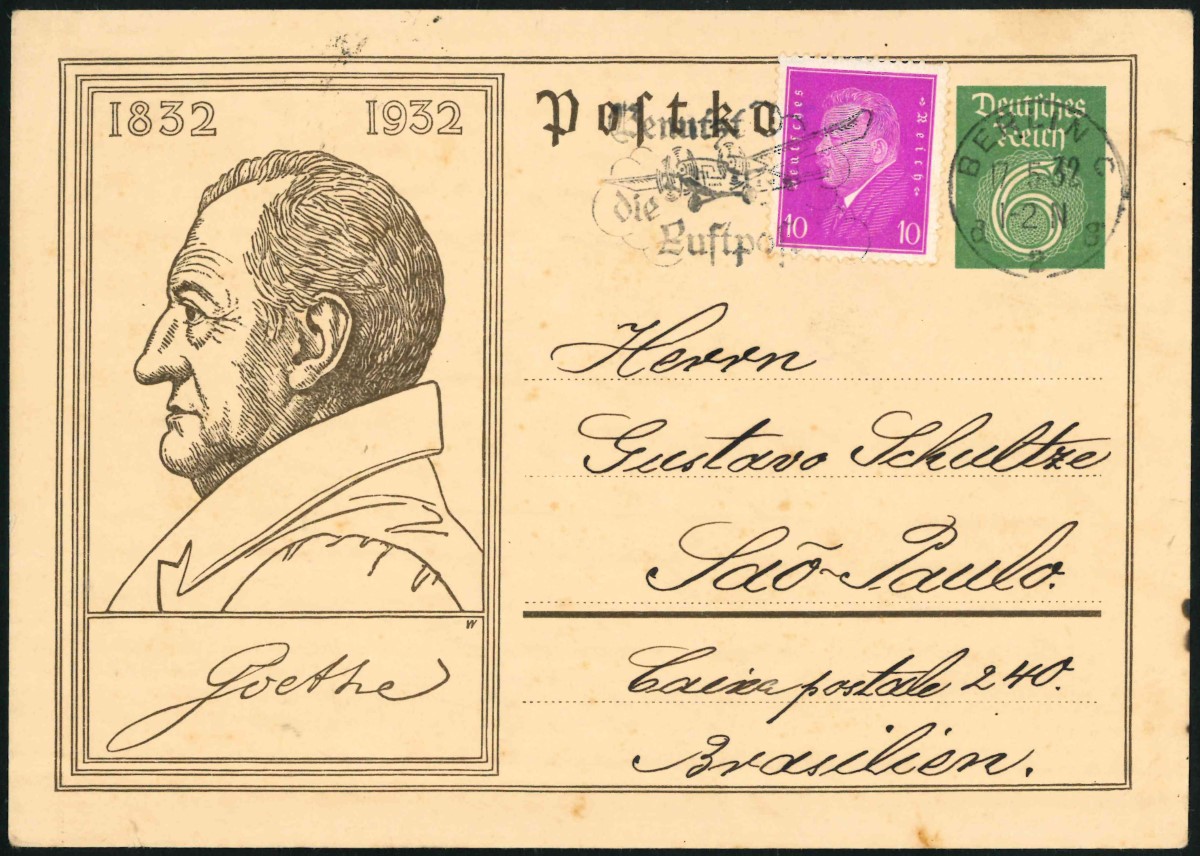 1832 1932
Postka
Benutzt
die
Luftpos
Deutsches Reich
10 10
Deutsches
Reich
6
BERLIN C
17.5.32
1-2 N
a a
2
Herrn
Gustavo Schultze
São-Paulo.
Caixa postale 240.
Brasilien.
W
Goethe